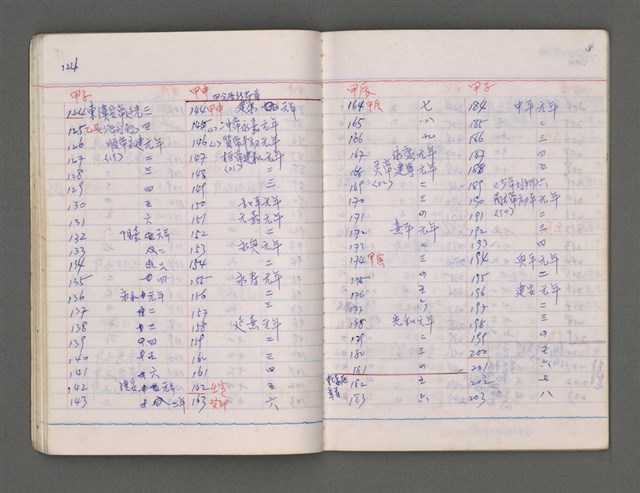 124
甲子
124 東漢安帝延光 三
125 乙丑 四
126 順帝永建元年
127 二
128 三
129 四
130 五
131 六
132 陽嘉元年
133 二
134 三
135 四
136 永和元年
137 二
138 三
139 四
140 五
141 六
142 漢安元年
143 二年
甲申
144 甲申 建康元年
145 冲帝永嘉元年
146 質帝本初元年
147 桓帝建和元年
148 二
149 三
150 和平元年
151 元嘉元年
152 二
153 永興元年
154 二
155 永壽元年
156 二
157 三
158 延熹元年
159 二
160 三
161 四
162 壬寅 五
163 癸卯 六
甲辰
164 甲辰 七
165 八
166 九
167 永康元年
168 灵帝建寧元年
169 二
170 三
171 四
172 熹平元年
173 二
174 甲寅 三
175 四
176 五
177 六
178 光和元年
179 二
180 三
181 四
182 五
183 六
甲子
184 中平元年
185 二
186 三
187 四
188 五
189
190 献帝初平元年
191 二
192 三
193 四
194 興平元年
195 二
196 建安元年
197 二
198 三
199 四
200 五
201 六
202 七
203 八